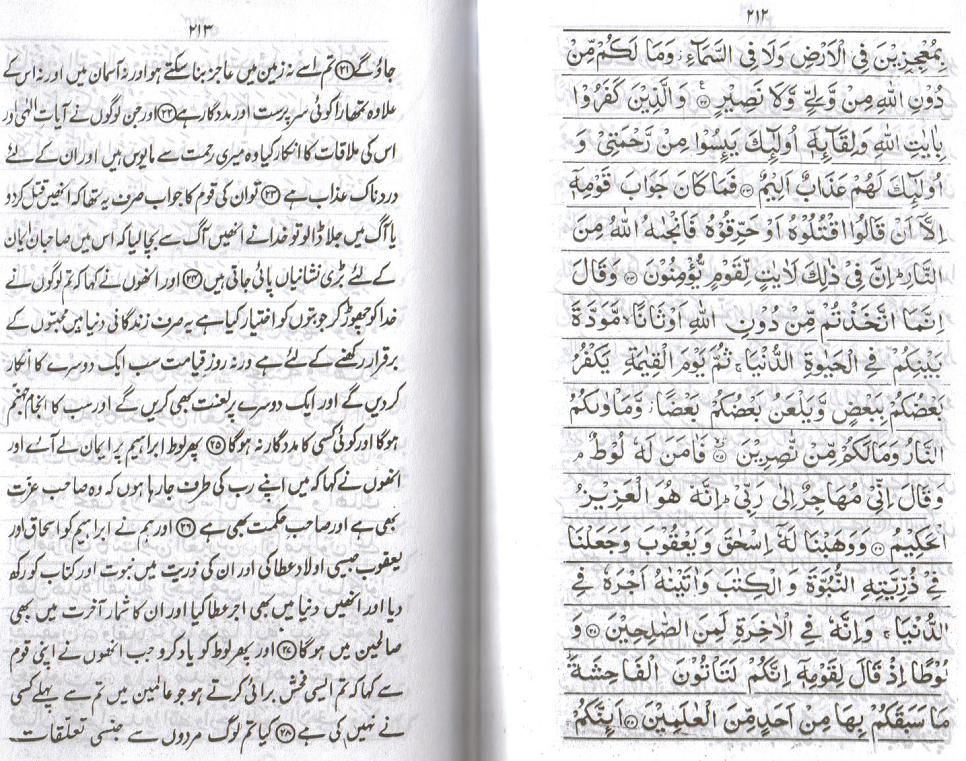 ٢١٢
بِمُعْجِزِيْنَ فِى الْاَرْضِ وَلَا فِى السَّمَآءِ وَمَا لَكُمْ مِّنْ
دُوْنِ اللهِ مِنْ وَّلِيٍّ وَّلَا نَصِيْرٍ ﴿٢٢﴾ وَالَّذِيْنَ كَفَرُوْا
بِاٰيٰتِ اللهِ وَلِقَآئِهٖٓ اُولٰٓئِكَ يَئِسُوْا مِنْ رَّحْمَتِيْ وَ
اُولٰٓئِكَ لَهُمْ عَذَابٌ اَلِيْمٌ ﴿٢٣﴾ فَمَا كَانَ جَوَابَ قَوْمِهٖٓ
اِلَّآ اَنْ قَالُوا اقْتُلُوْهُ اَوْ حَرِّقُوْهُ فَاَنْجٰىهُ اللهُ مِنَ
النَّارِ اِنَّ فِيْ ذٰلِكَ لَاٰيٰتٍ لِّقَوْمٍ يُّؤْمِنُوْنَ ﴿٢٤﴾ وَقَالَ
اِنَّمَا اتَّخَذْتُمْ مِّنْ دُوْنِ اللهِ اَوْثَانًا مَّوَدَّةَ
بَيْنِكُمْ فِي الْحَيٰوةِ الدُّنْيَا ثُمَّ يَوْمَ الْقِيٰمَةِ يَكْفُرُ
بَعْضُكُمْ بِبَعْضٍ وَّيَلْعَنُ بَعْضُكُمْ بَعْضًا وَّمَاْوٰىكُمُ
النَّارُ وَمَا لَكُمْ مِّنْ نّٰصِرِيْنَ ﴿٢٥﴾ فَاٰمَنَ لَهٗ لُوْطٌ م
وَقَالَ اِنِّيْ مُهَاجِرٌ اِلٰى رَبِّيْ اِنَّهٗ هُوَ الْعَزِيْزُ
الْحَكِيْمُ ﴿٢٦﴾ وَوَهَبْنَا لَهٗٓ اِسْحٰقَ وَيَعْقُوْبَ وَجَعَلْنَا
فِيْ ذُرِّيَّتِهِ النُّبُوَّةَ وَالْكِتٰبَ وَاٰتَيْنٰهُ اَجْرَهٗ فِي
الدُّنْيَا وَاِنَّهٗ فِي الْاٰخِرَةِ لَمِنَ الصّٰلِحِيْنَ ﴿٢٧﴾ وَ
لُوْطًا اِذْ قَالَ لِقَوْمِهٖٓ اِنَّكُمْ لَتَاْتُوْنَ الْفَاحِشَةَ
مَا سَبَقَكُمْ بِهَا مِنْ اَحَدٍ مِّنَ الْعٰلَمِيْنَ ﴿٢٨﴾ اَئِنَّكُمْ
٢١٣
جاؤ گے ﴿٢١﴾ تم اسے نہ زمین میں عاجز بنا سکتے ہو اور نہ آسمان میں اور نہ اس کے
علاوہ تمھارا کوئی سرپرست اور مددگار ہے ﴿٢٢﴾ اور جن لوگوں نے آیات الٰہی اور
اس کی ملاقات کا انکار کیا وہ میری رحمت سے مایوس ہیں اور ان کے لئے
دردناک عذاب ہے ﴿٢٣﴾ تو ان کی قوم کا جواب صرف یہ تھا کہ انھیں قتل کر دو
یا آگ میں جلا ڈالو تو خدا نے انھیں آگ سے بچا لیا کہ اس میں صاحبان ایمان
کے لئے بڑی نشانیاں پائی جاتی ہیں ﴿٢٤﴾ اور انھوں نے کہا کہ تم لوگوں نے
خدا کو چھوڑ کر جو بتوں کو اختیار کیا ہے یہ صرف زندگانی دنیا میں محبتوں کے
برقرار رکھنے کے لئے ہے ورنہ روز قیامت سب ایک دوسرے کا انکار
کر دیں گے اور ایک دوسرے پر لعنت بھی کریں گے اور سب کا انجام جہنم
ہوگا اور کوئی کسی کا مددگار نہ ہوگا ﴿٢٥﴾ پھر لوط ابراہیم پر ایمان لے آئے اور
انھوں نے کہا کہ میں اپنے رب کی طرف جا رہا ہوں کہ وہ صاحب عزت
بھی ہے اور صاحب حکمت بھی ہے ﴿٢٦﴾ اور ہم نے ابراہیم کو اسحاق اور
یعقوب جیسی اولاد عطا کی اور ان کی ذریت میں نبوت اور کتاب کو رکھ
دیا اور انھیں دنیا میں بھی اجر عطا کیا اور ان کا شمار آخرت میں بھی
صالحین میں ہوگا ﴿٢٧﴾ اور پھر لوط کو یاد کرو جب انھوں نے اپنی قوم
سے کہا کہ تم ایسی فحش برائی کرتے ہو جو عالمین میں تم سے پہلے کسی
نے نہیں کی ہے ﴿٢٨﴾ کیا تم لوگ مردوں سے جنسی تعلقات